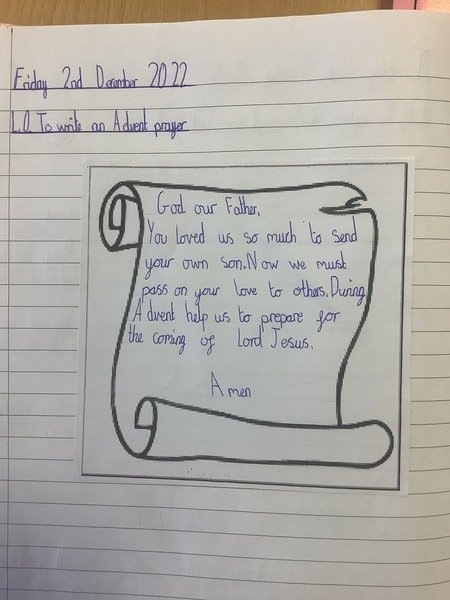 Friday 2nd December 2022
L.O. To write an Advent prayer
God our Father,
You loved us so much to send
your own son. Now we must
pass on your love to others. During
Advent help us to prepare for
the coming of Lord Jesus.
Amen